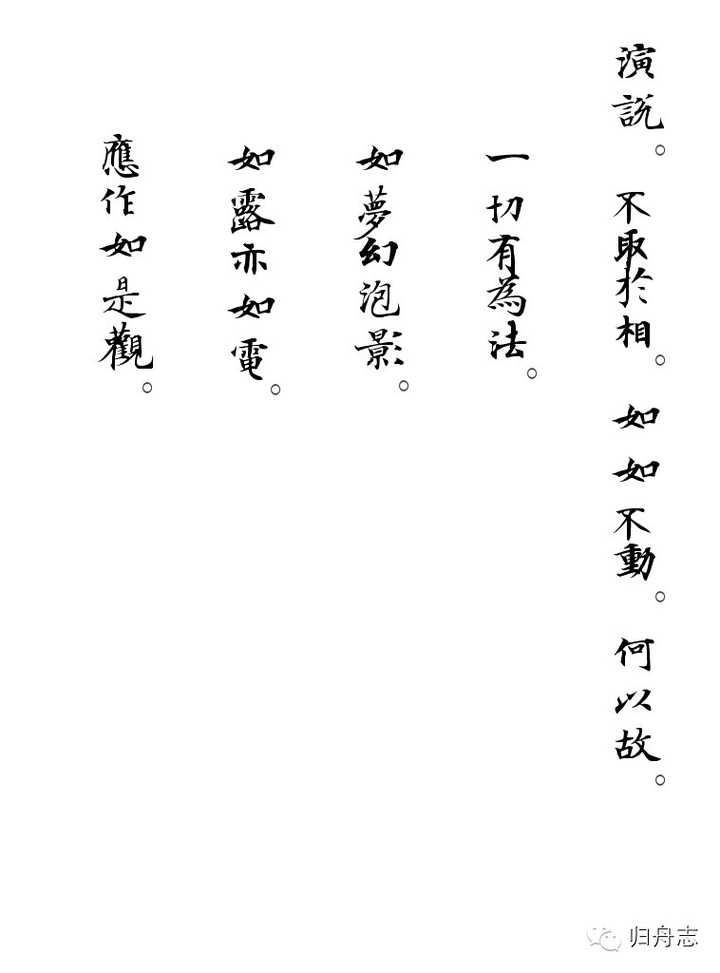 演說。不取於相。如如不動。何以故。
一切有為法。
如夢幻泡影。
如露亦如電。
應作如是觀。
归舟志